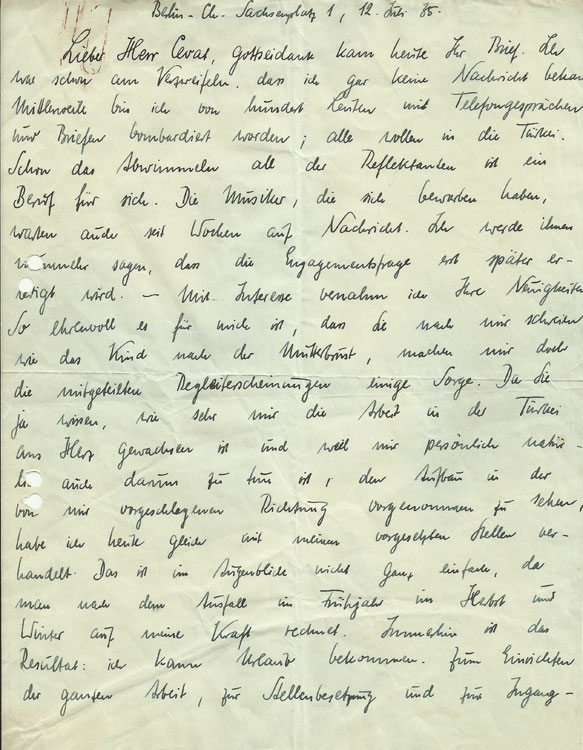 Berlin-Ch. Sachsenplatz 1, 12. Juli 35.
Lieber Herr Cevat, Gottseidank kam heute Ihr Brief. Ich
war schon am Verzweifeln, dass ich gar keine Nachricht bekam
Mittlerweile bin ich von hundert Leuten mit Telefongesprächen
und Briefen bombardiert worden; alle wollen in die Türkei.
Schon das Abwimmeln all der Reflektanten ist ein
Beruf für sich. Die Musiker, die sich beworben haben,
warten auch seit Wochen auf Nachricht. Ich werde ihnen
nunmehr sagen, dass die Engagementsfrage erst später er-
ledigt wird. — Mit Interesse vernahm ich Ihre Neuigkeiten
So ehrenvoll es für mich ist, dass Sie nach mir schreien
wie das Kind nach der Mutterbrust, machen mir doch
die mitgeteilten Begleiterscheinungen einige Sorge. Da Sie
ja wissen, wie sehr mir die Arbeit in der Türkei
ans Herz gewachsen ist und weil mir persönlich natür-
lich auch darum zu tun ist, den Aufbau in der
von mir vorgeschlagenen Richtung vorgenommen zu sehen,
habe ich heute gleich mit meinen vorgesetzten Stellen ver-
handelt. Das ist im Augenblick nicht ganz einfach, da
man nach dem Ausfall im Frühjahr im Herbst und
Winter auf meine Kraft rechnet. Immerhin ist das
Resultat: ich kann Urlaub bekommen. Zum Einrichten
der ganzen Arbeit, zur Stellenbesetzung und zur Ingang-